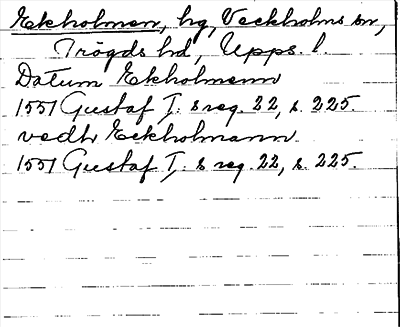 Ekholmen, hg, Veckholms sn,
Trögds hd, Upps. l.
Datum Ekholmenn
1551 Gustaf I:s reg. 22, s. 225.
vedh Eckholmann.
1551 Gustaf I:s reg. 22, s. 225.